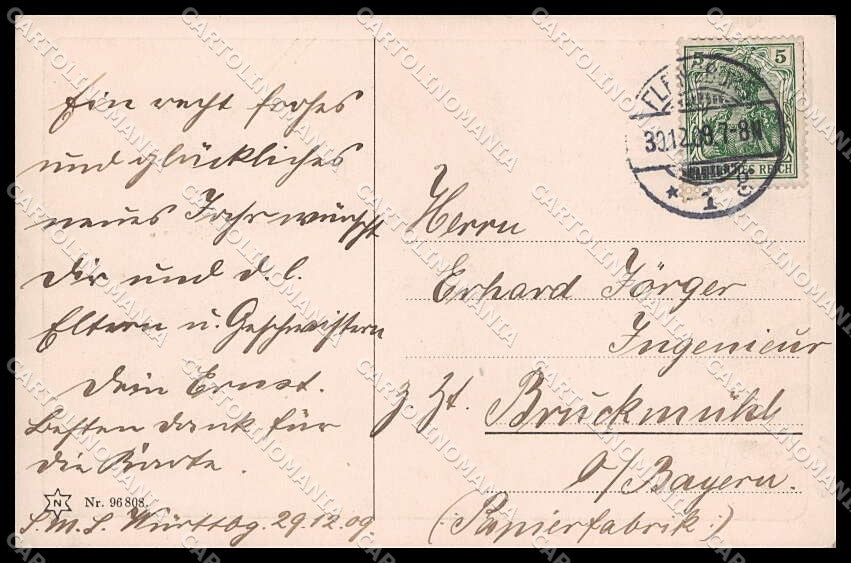 Ein recht frohes
und glückliches
neues Jahr wünscht
Dir und d. l.
Eltern u. Geschwistern
Dein Ernst.
Besten Dank für
die Karte.
N Nr. 96808.
S.M.S. Württbg. 29.12.09
5
DEUTSCHES REICH
30.12.09.7-8N
* 1
Herrn
Erhard Jörger
Ingenieur
z Zt. Bruckmühl
O/Bayern.
(:Papierfabrik:)
CARTOLINOMANIA